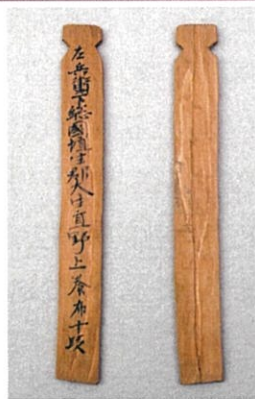 左兵衛下総國埴生郡大生直野上養布十段